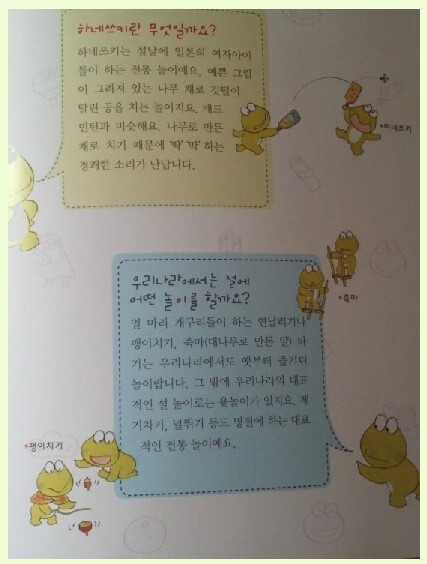 하네쓰키란 무엇일까요?
하네쓰키는 설날에 일본의 여자아이
들이 하는 전통 놀이예요. 예쁜 그림
이 그려져 있는 나무 채로 깃털이
달린 공을 치는 놀이지요. 배드
민턴과 비슷해요. 나무로 만든
채로 치기 때문에 '딱' '딱' 하는
경쾌한 소리가 난답니다.
하네쓰키
우리나라에서는 설에
어떤 놀이를 할까요?
열 마리 개구리들이 하는 연날리기나
팽이치기, 죽마(대나무로 만든 말) 타
기는 우리나라에서도 옛부터 즐기던
놀이랍니다. 그 밖에 우리나라의 대표
적인 설 놀이로는 윷놀이가 있지요. 제
기차기, 널뛰기 등도 명절에 하는 대표
적인 전통 놀이예요.
죽마
팽이치기